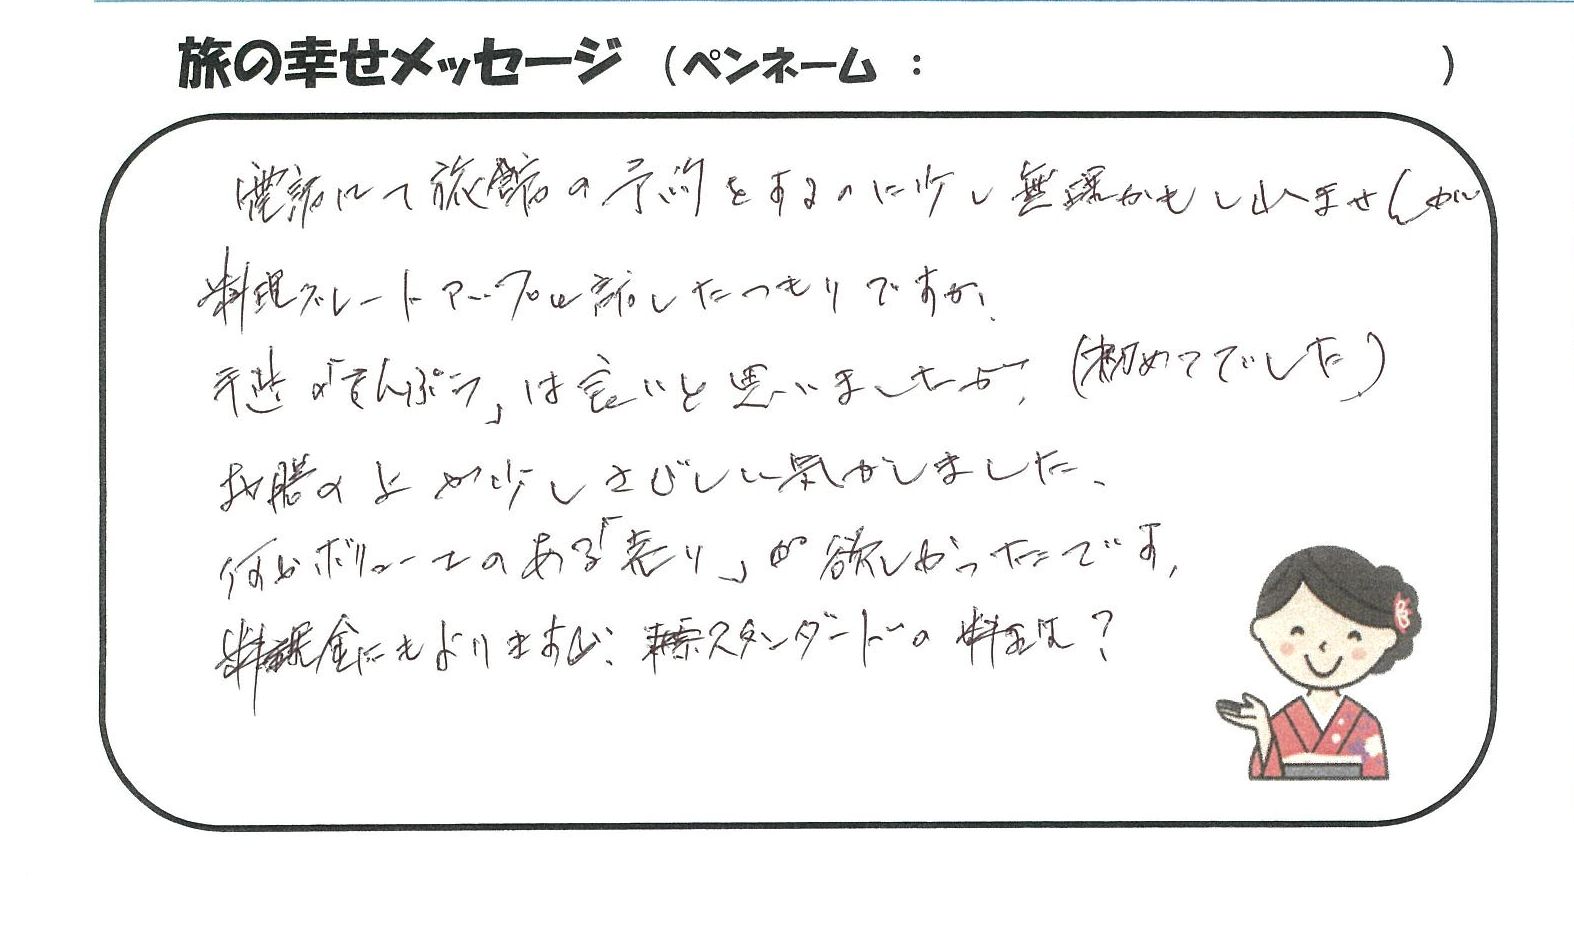 旅の幸せメッセージ (ペンネーム : )
電話にて旅館の予約をするのに少し無理かもしれませんが
料理グレートアップに話したつもりですが、
手造の「てんぷら」は良いと思いましたが、(初めてでした)
お膳の上が少しさびしい気がしました、
何かボリュームのある「売り」が欲しかったです,
料金にもよりますが、スタンダードの料金は?